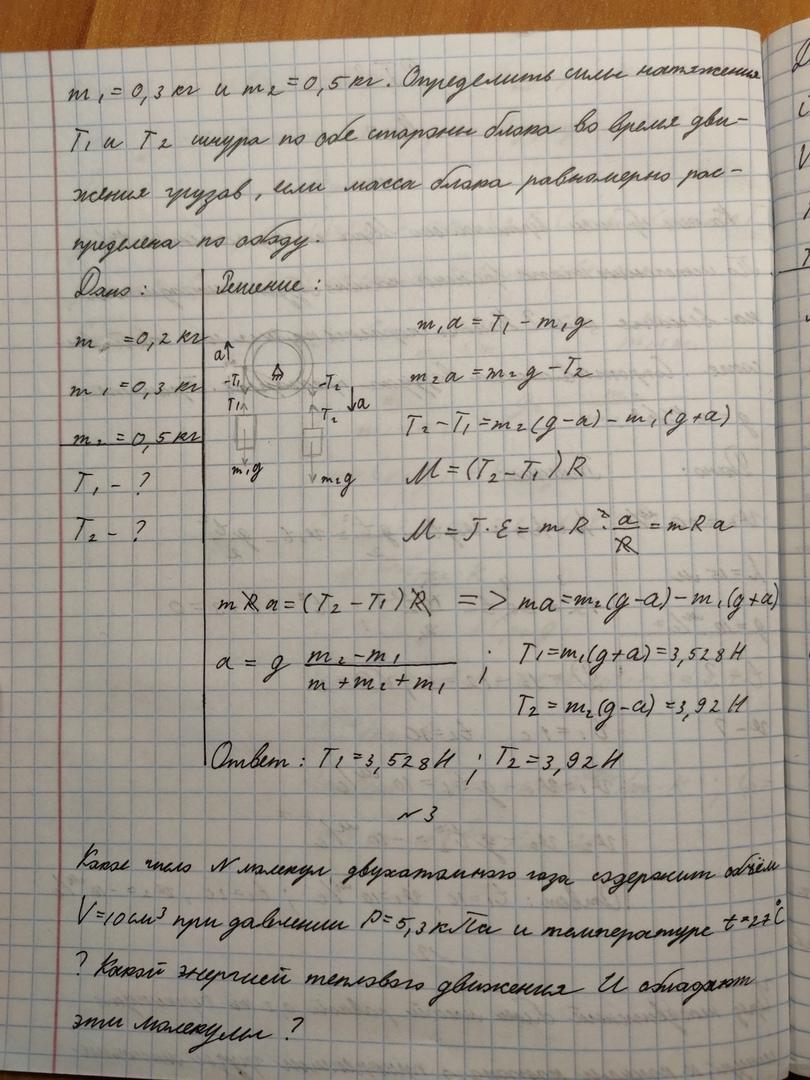 m₁ = 0,3 кг и m₂ = 0,5 кг. Определить силы натяжения
T₁ и T₂ шнура по обе стороны блока во время дви-
жения грузов, если масса блока равномерно рас-
пределена по ободу.
Дано:
m = 0,2 кг
m₁ = 0,3 кг
m₂ = 0,5 кг
T₁ - ?
T₂ - ?
Решение:
a
-T₁
T₁
m₁g
-T₂
T₂
a
m₂g
m₁a = T₁ - m₁g
m₂a = m₂g - T₂
T₂ - T₁ = m₂(g-a) - m₁(g+a)
M = (T₂ - T₁)R
M = J · ε = mR² · a/R = mRa
mRa = (T₂ - T₁)R => ma = m₂(g-a) - m₁(g+a)
a = g (m₂ - m₁)/(m + m₂ + m₁) ; T₁ = m₁(g+a) = 3,528 Н
T₂ = m₂(g-a) = 3,92 Н
Ответ: T₁ = 3,528 Н ; T₂ = 3,92 Н
№3
Какое число N молекул двухатомного газа содержит объём
V = 10 см³ при давлении P = 5,3 кПа и температуре t = 27°C
? Какой энергией теплового движения U обладают
эти молекулы?